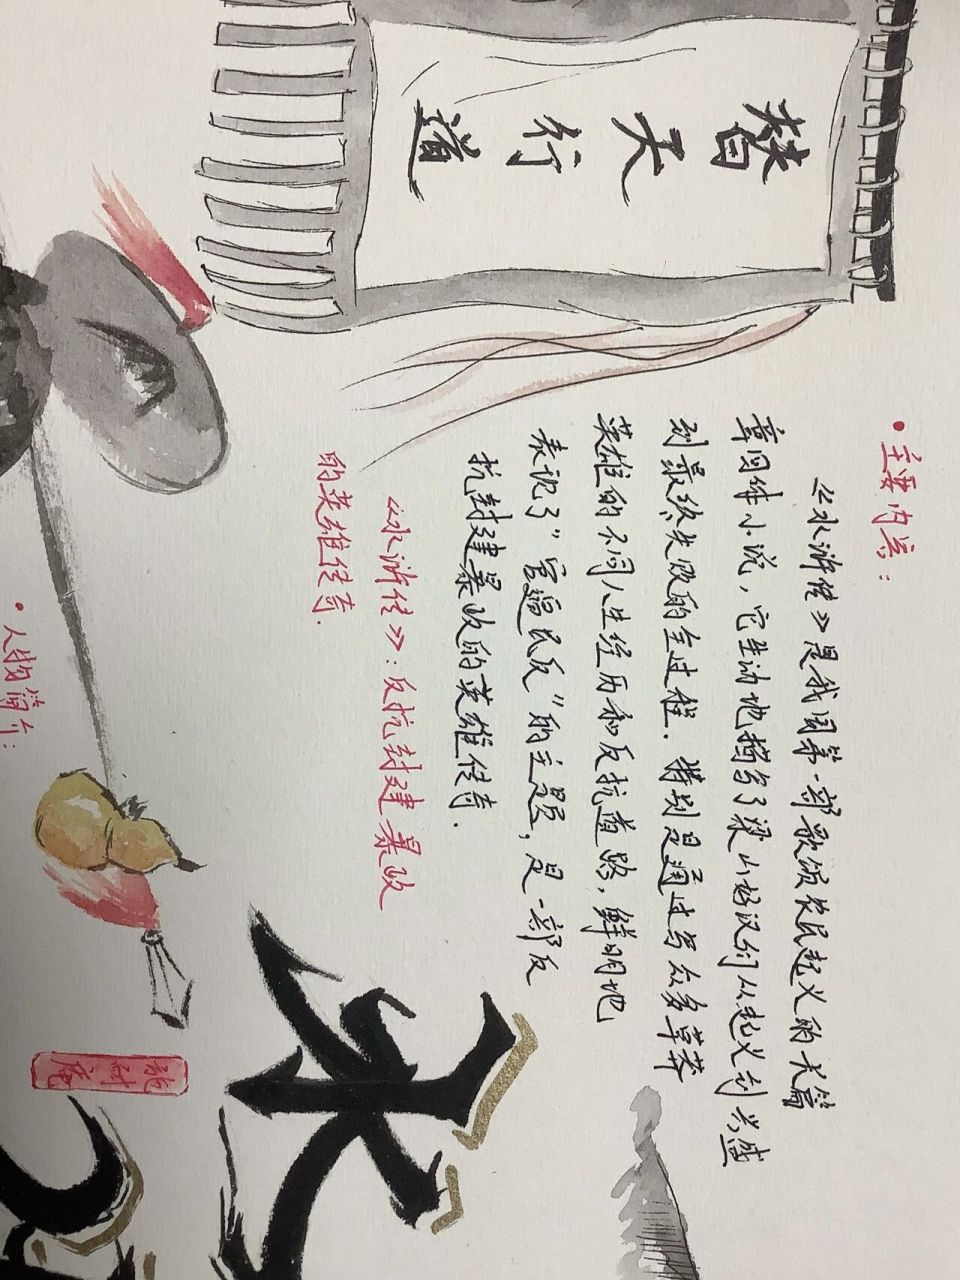 替天行道
•主要内容:
《水浒传》是我国第一部歌颂农民起义的长篇
章回体小说,它生动地描写了梁山好汉们从起义到兴盛
到最终失败的全过程.特别是通过写众多草莽
英雄的不同人生经历和反抗道路,鲜明地
表现了"官逼民反"的主题,是一部反
抗封建暴政的英雄传奇.
《水浒传》:反抗封建暴政
的英雄传奇.
•人物简介:
水
施耐庵